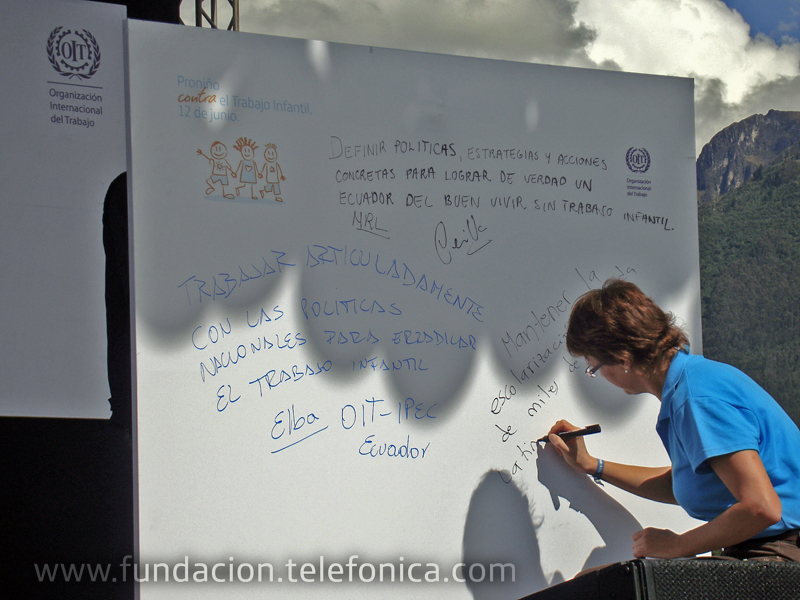 OIT
Organización
Internacional
del Trabajo
Proniño
contra el Trabajo Infantil.
12 de junio.
DEFINIR POLITICAS, ESTRATEGIAS Y ACCIONES
CONCRETAS PARA LOGRAR DE VERDAD UN
ECUADOR DEL BUEN VIVIR SIN TRABAJO INFANTIL.
MRL
OIT
Organización
Internacional
del Trabajo
TRABAJAR ARTICULADAMENTE
CON LAS POLITICAS
NACIONALES PARA ERRADICAR
EL TRABAJO INFANTIL
Elba OIT-IPEC
Ecuador
Mantener la
escolarización
de miles de
Latin
www.fundacion.telefonica.com